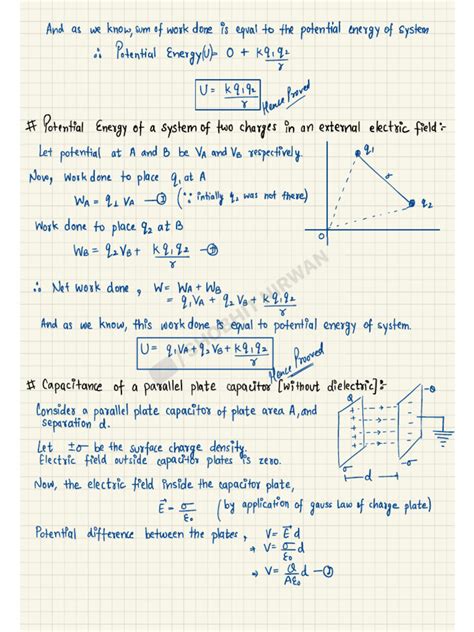 And as we know, sum of work done is equal to the potential energy of system
∴ Potential Energy(U) = 0 + kq₁q₂/r
U = kq₁q₂/r
Hence Proved
# Potential Energy of a system of two charges in an external electric field:-
Let potential at A and B be VA and VB respectively.
Now, work done to place q₁ at A
WA = q₁ VA — ① (∵ intially q₂ was not there)
Work done to place q₂ at B
WB = q₂VB + kq₁q₂/r — ②
q₁
r
q₂
O
∴ Net work done, W = WA + WB
= q₁VA + q₂VB + kq₁q₂/r
And as we know, this work done is equal to potential energy of system.
U = q₁VA + q₂VB + kq₁q₂/r
Hence Prooved
SHOBHIT NIRWAN
# Capacitance of a parallel plate capacitor [without dielectric]:-
Consider a parallel plate capacitor of plate area A, and
separation d.
Let ±σ be the surface charge density.
Electric field outside capacitor plates is zero.
Q
-Q
σ
-σ
d
Now, the electric field inside the capacitor plate,
E⃗ = σ/ε₀ (by application of gauss law of charge plate)
Potential difference between the plates, V = E⃗ d
→ V = σ/ε₀ d
→ V = Q/Aε₀ d — ①